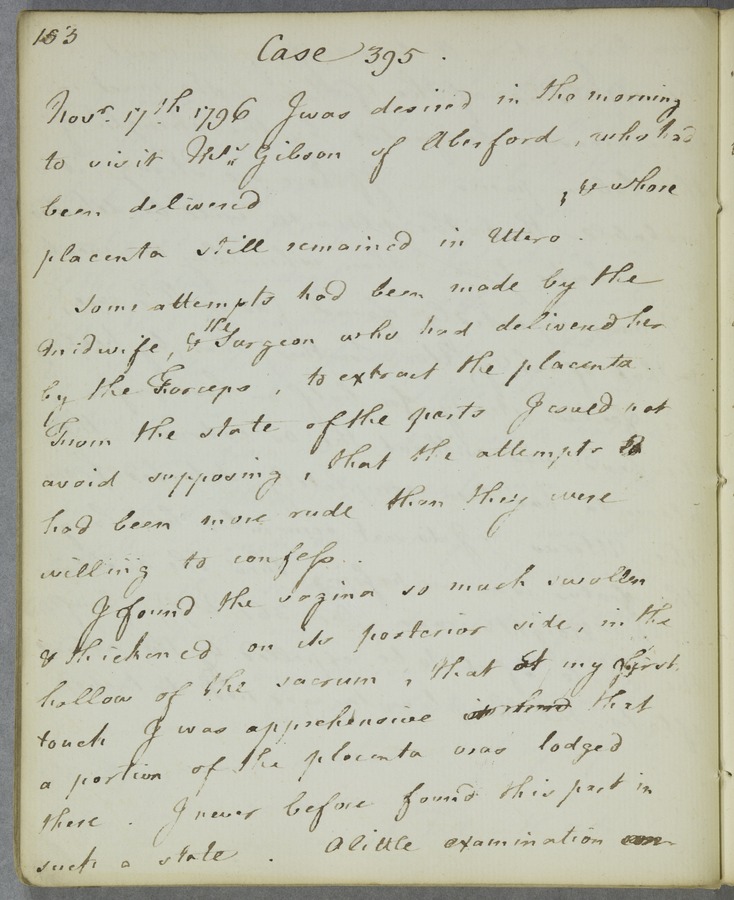 153
Case 395.
Novr. 17th. 1796 I was desired in the morning
to visit Mrs. Gibson of Aberford, who had
been delivered , & whose
placenta still remained in Utero.
Some attempts had been made by the
Midwife, & the Surgeon who had delivered her
by the Forceps, to extract the placenta.
From the state of the parts I could not
avoid supposing, that the attempts
had been more rude than they were
willing to confess.
I found the vagina so much swollen
& thickened on its posterior side, in the
hollow of the sacrum, that at my first
touch I was apprehensive that
a portion of the placenta was lodged
there. I never before found this part in
such a state. A little examination